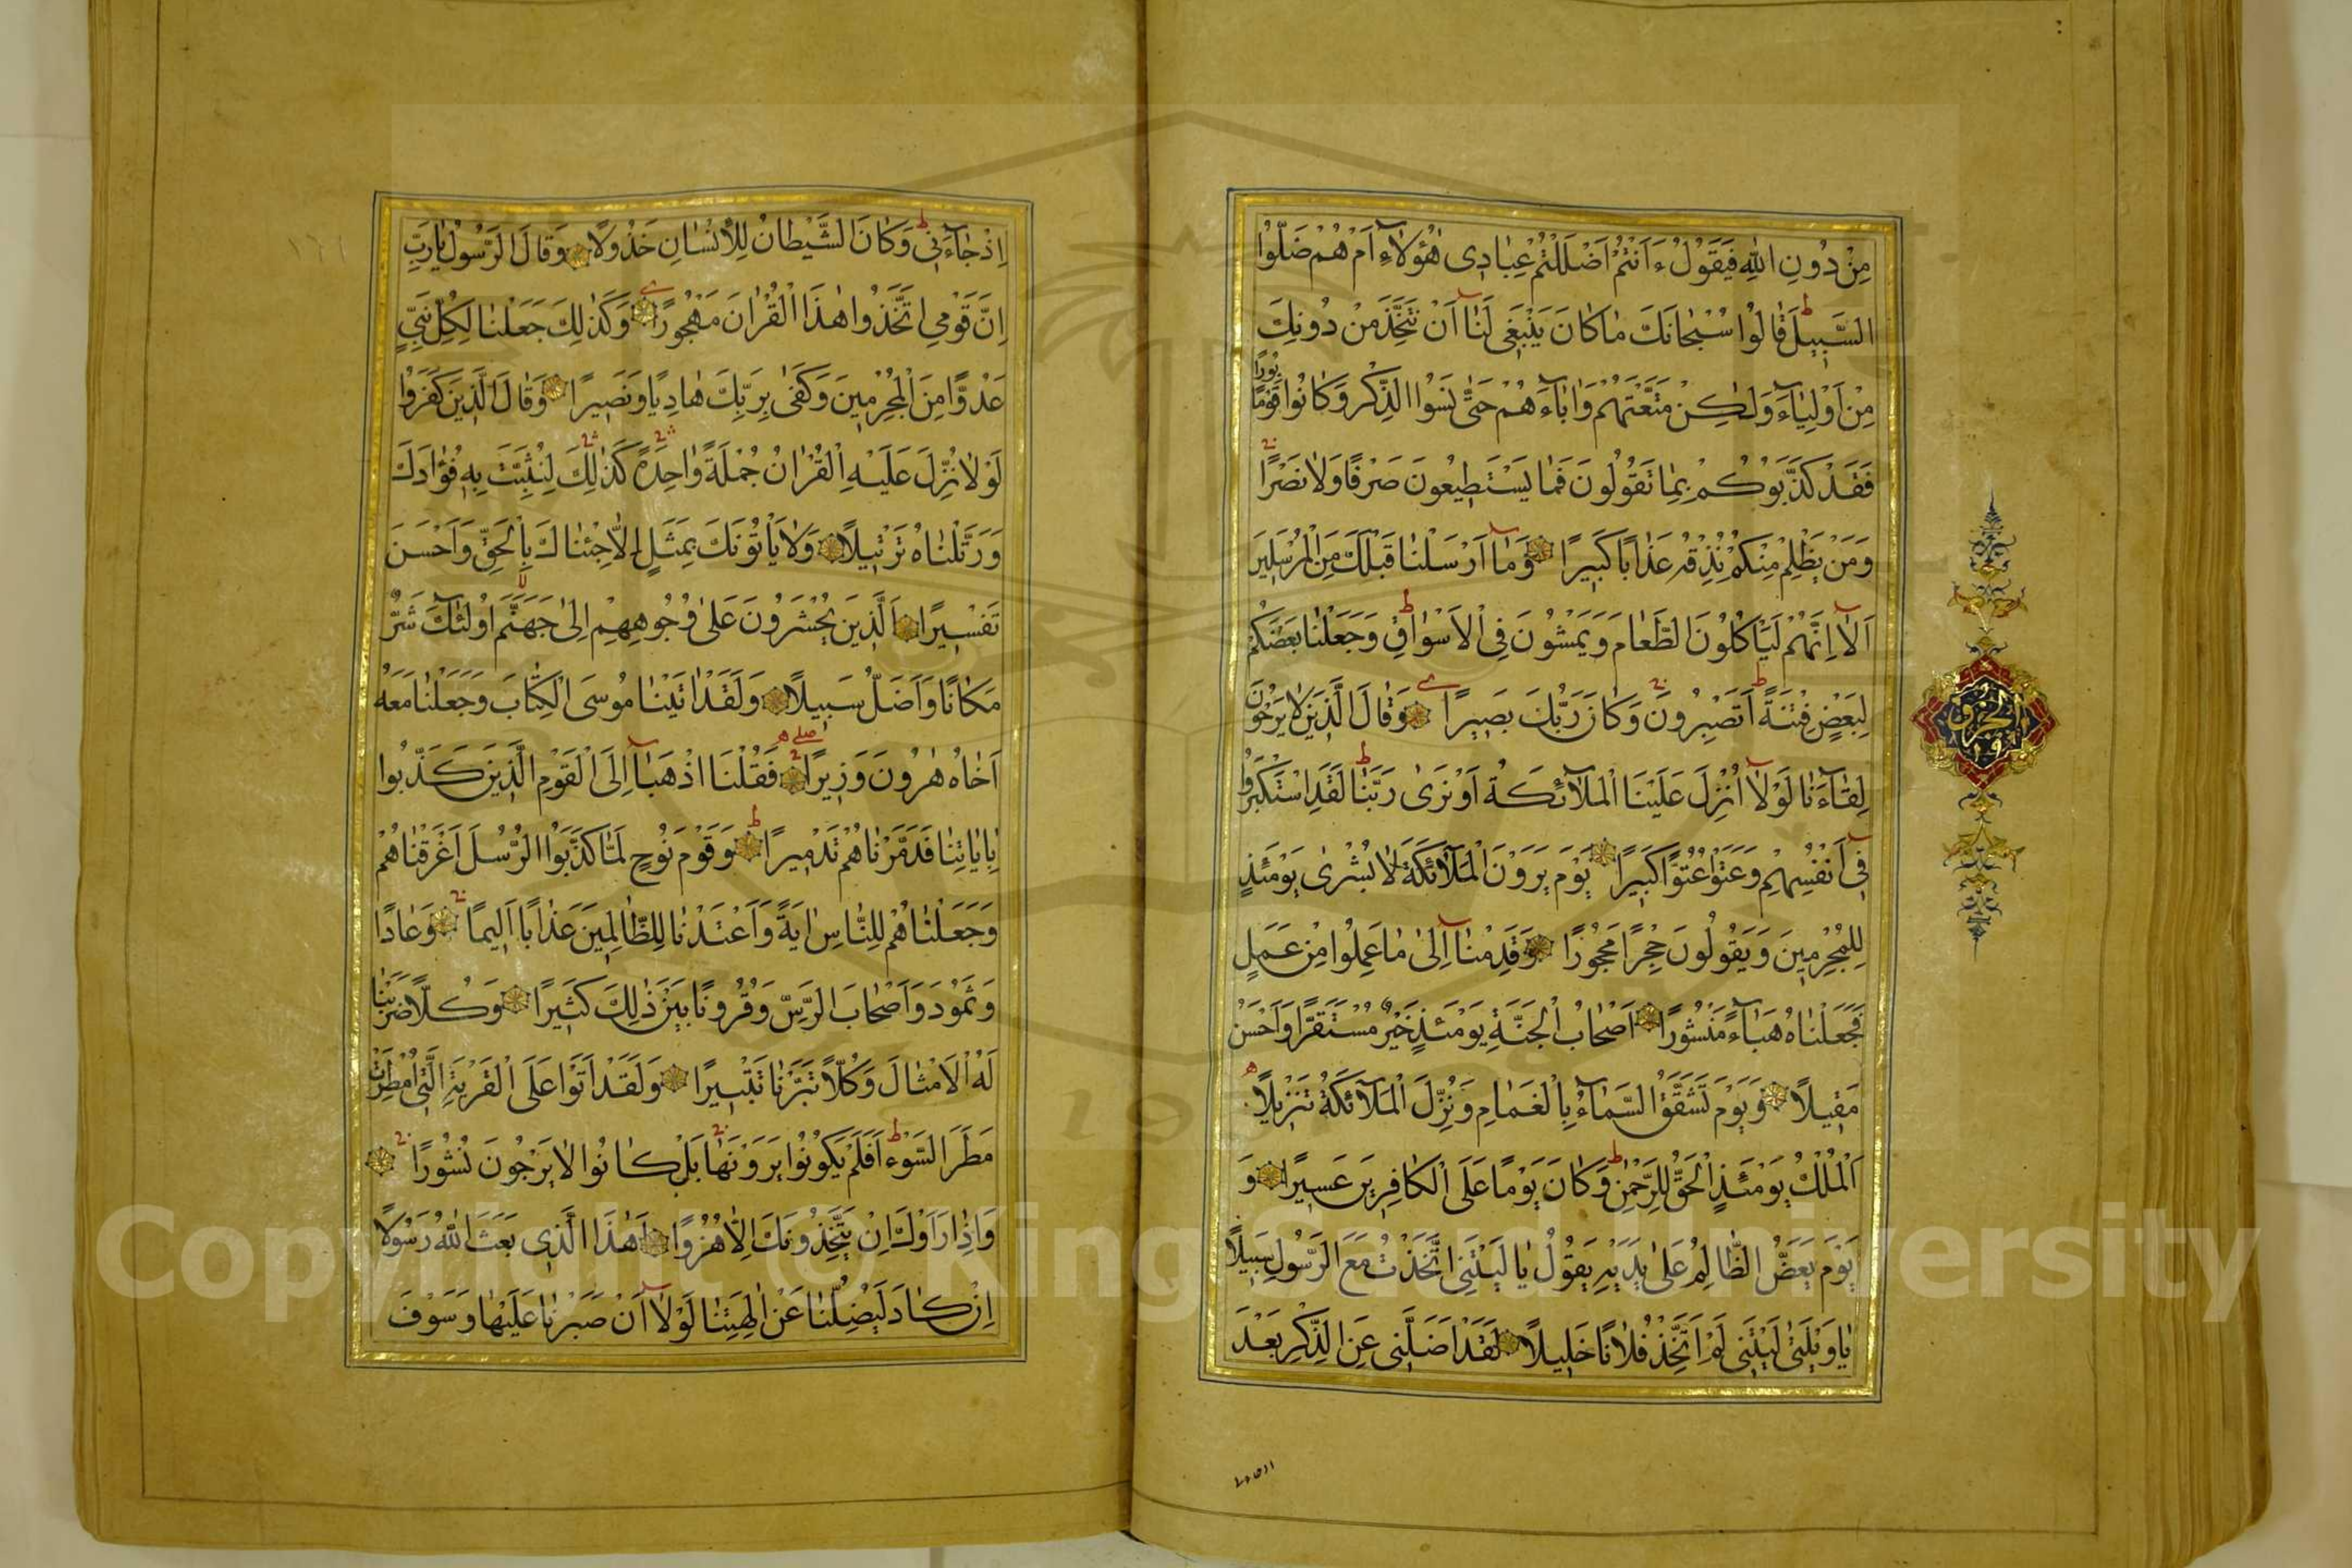 مِنْ دُونِ اللهِ فَيَقُولُ ءَاَنْتُمْ اَضْلَلْتُمْ عِبَادِى هٰؤُلَآءِ اَمْ هُمْ ضَلُّوا
السَّبِيلَ قَالُوا سُبْحَانَكَ مَا كَانَ يَنْبَغِى لَنَآ اَنْ نَتَّخِذَ مِنْ دُونِكَ
مِنْ اَوْلِيَآءَ وَلٰكِنْ مَتَّعْتَهُمْ وَاٰبَآءَهُمْ حَتّٰى نَسُوا الذِّكْرَ وَكَانُوا قَوْمًا بُورًا
فَقَدْ كَذَّبُوكُمْ بِمَا تَقُولُونَ فَمَا يَسْتَطِيعُونَ صَرْفًا وَلَا نَصْرًا
وَمَنْ يَظْلِمْ مِنْكُمْ نُذِقْهُ عَذَابًا كَبِيرًا وَمَآ اَرْسَلْنَا قَبْلَكَ مِنَ الْمُرْسَلِينَ
اِلَّآ اِنَّهُمْ لَيَأْكُلُونَ الطَّعَامَ وَيَمْشُونَ فِى الْاَسْوَاقِ وَجَعَلْنَا بَعْضَكُمْ
لِبَعْضٍ فِتْنَةً اَتَصْبِرُونَ وَكَانَ رَبُّكَ بَصِيرًا وَقَالَ الَّذِينَ لَا يَرْجُونَ
لِقَآءَنَا لَوْلَآ اُنْزِلَ عَلَيْنَا الْمَلَآئِكَةُ اَوْ نَرٰى رَبَّنَا لَقَدِ اسْتَكْبَرُوا
فِىٓ اَنْفُسِهِمْ وَعَتَوْا عُتُوًّا كَبِيرًا يَوْمَ يَرَوْنَ الْمَلَآئِكَةَ لَا بُشْرٰى يَوْمَئِذٍ
لِلْمُجْرِمِينَ وَيَقُولُونَ حِجْرًا مَحْجُورًا وَقَدِمْنَآ اِلٰى مَا عَمِلُوا مِنْ عَمَلٍ
فَجَعَلْنَاهُ هَبَآءً مَنْثُورًا اَصْحَابُ الْجَنَّةِ يَوْمَئِذٍ خَيْرٌ مُسْتَقَرًّا وَاَحْسَنُ
مَقِيلًا وَيَوْمَ تَشَقَّقُ السَّمَآءُ بِالْغَمَامِ وَنُزِّلَ الْمَلَآئِكَةُ تَنْزِيلًا
اَلْمُلْكُ يَوْمَئِذٍ الْحَقُّ لِلرَّحْمٰنِ وَكَانَ يَوْمًا عَلَى الْكَافِرِينَ عَسِيرًا وَ
يَوْمَ يَعَضُّ الظَّالِمُ عَلٰى يَدَيْهِ يَقُولُ يَا لَيْتَنِى اتَّخَذْتُ مَعَ الرَّسُولِ سَبِيلًا
يَا وَيْلَتٰى لَيْتَنِى لَمْ اَتَّخِذْ فُلَانًا خَلِيلًا لَقَدْ اَضَلَّنِى عَنِ الذِّكْرِ بَعْدَ
اِذْ جَآءَنِى وَكَانَ الشَّيْطَانُ لِلْاِنْسَانِ خَذُولًا وَقَالَ الرَّسُولُ يَا رَبِّ
اِنَّ قَوْمِى اتَّخَذُوا هٰذَا الْقُرْاٰنَ مَهْجُورًا وَكَذٰلِكَ جَعَلْنَا لِكُلِّ نَبِىٍّ
عَدُوًّا مِنَ الْمُجْرِمِينَ وَكَفٰى بِرَبِّكَ هَادِيًا وَنَصِيرًا وَقَالَ الَّذِينَ كَفَرُوا
لَوْلَا نُزِّلَ عَلَيْهِ الْقُرْاٰنُ جُمْلَةً وَاحِدَةً كَذٰلِكَ لِنُثَبِّتَ بِهِ فُؤَادَكَ
وَرَتَّلْنَاهُ تَرْتِيلًا وَلَا يَأْتُونَكَ بِمَثَلٍ اِلَّا جِئْنَاكَ بِالْحَقِّ وَاَحْسَنَ
تَفْسِيرًا اَلَّذِينَ يُحْشَرُونَ عَلٰى وُجُوهِهِمْ اِلٰى جَهَنَّمَ اُولٰئِكَ شَرٌّ
مَكَانًا وَاَضَلُّ سَبِيلًا وَلَقَدْ اٰتَيْنَا مُوسَى الْكِتَابَ وَجَعَلْنَا مَعَهُ
اَخَاهُ هٰرُونَ وَزِيرًا فَقُلْنَا اذْهَبَآ اِلَى الْقَوْمِ الَّذِينَ كَذَّبُوا
بِاٰيَاتِنَا فَدَمَّرْنَاهُمْ تَدْمِيرًا وَقَوْمَ نُوحٍ لَمَّا كَذَّبُوا الرُّسُلَ اَغْرَقْنَاهُمْ
وَجَعَلْنَاهُمْ لِلنَّاسِ اٰيَةً وَاَعْتَدْنَا لِلظَّالِمِينَ عَذَابًا اَلِيمًا وَعَادًا
وَثَمُودَ وَاَصْحَابَ الرَّسِّ وَقُرُونًا بَيْنَ ذٰلِكَ كَثِيرًا وَكُلًّا ضَرَبْنَا
لَهُ الْاَمْثَالَ وَكُلًّا تَبَّرْنَا تَتْبِيرًا وَلَقَدْ اَتَوْا عَلَى الْقَرْيَةِ الَّتِى اُمْطِرَتْ
مَطَرَ السَّوْءِ اَفَلَمْ يَكُونُوا يَرَوْنَهَا بَلْ كَانُوا لَا يَرْجُونَ نُشُورًا
وَاِذَا رَاَوْكَ اِنْ يَتَّخِذُونَكَ اِلَّا هُزُوًا اَهٰذَا الَّذِى بَعَثَ اللهُ رَسُولًا
اِنْ كَادَ لَيُضِلُّنَا عَنْ اٰلِهَتِنَا لَوْلَآ اَنْ صَبَرْنَا عَلَيْهَا وَسَوْفَ
Copyright © King Saud University